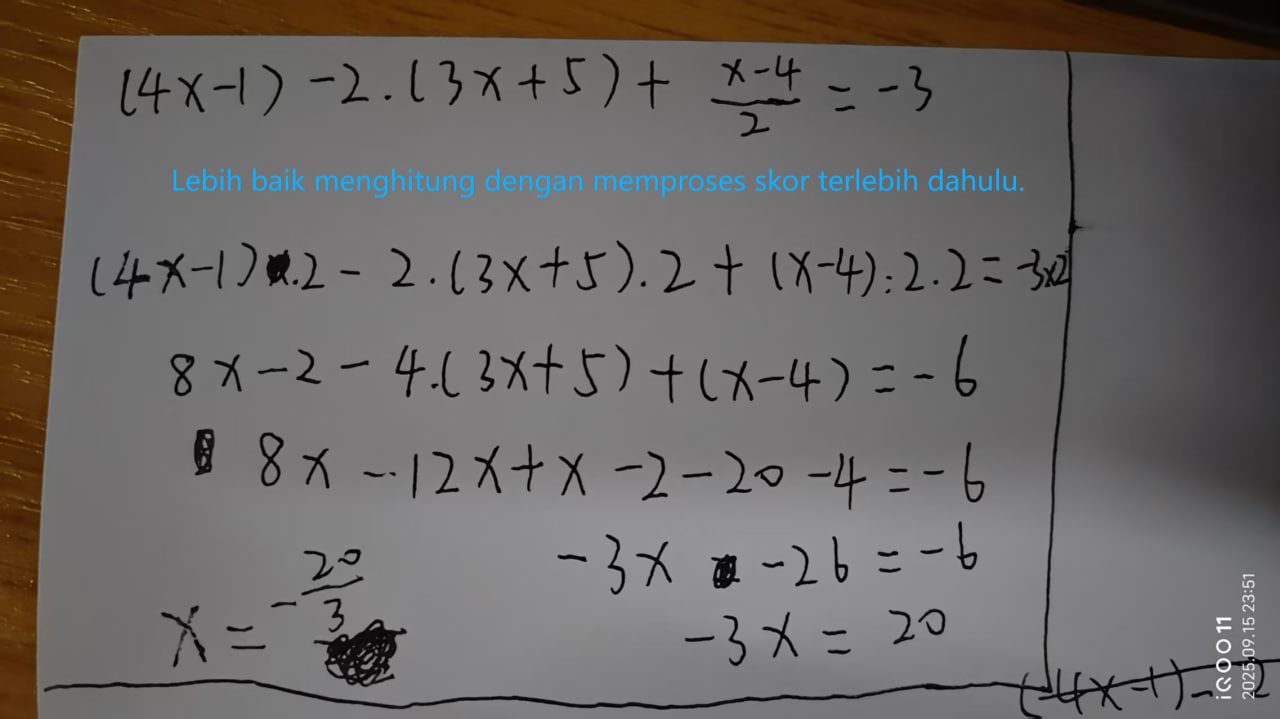 (4x-1) -2.(3x+5)+ \frac{x-4}{2} = -3
Lebih baik menghitung dengan memproses skor terlebih dahulu.
(4x-1).2 - 2.(3x+5).2 + (x-4):2.2 = -3x2
8x-2 - 4.(3x+5)+(x-4) = -6
8x -12x+x -2-20-4 = -6
-3x -26 = -6
-3x = 20
x = -\frac{20}{3}
(-4x-1)-2
iQOO 11
2025.09.15 23:51